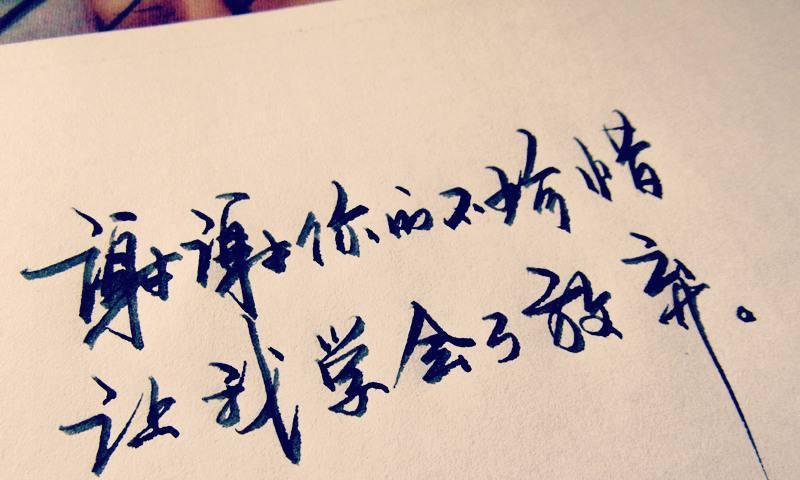 謝謝你的不珍惜
让我学会了放弃。